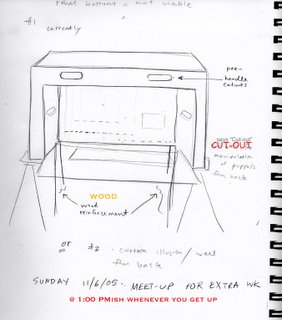 from bottom = not viable
#1 currently
pre-
handle
cutouts
says "Cut-out"
CUT-OUT
manipulation
of puppets
from back
WOOD
wood
reinforcement
or #2 - curtain illusion / wall
from back
SUNDAY 11/6/05 - MEET-UP FOR EXTRA WK
@ 1:00 PMish whenever you get up